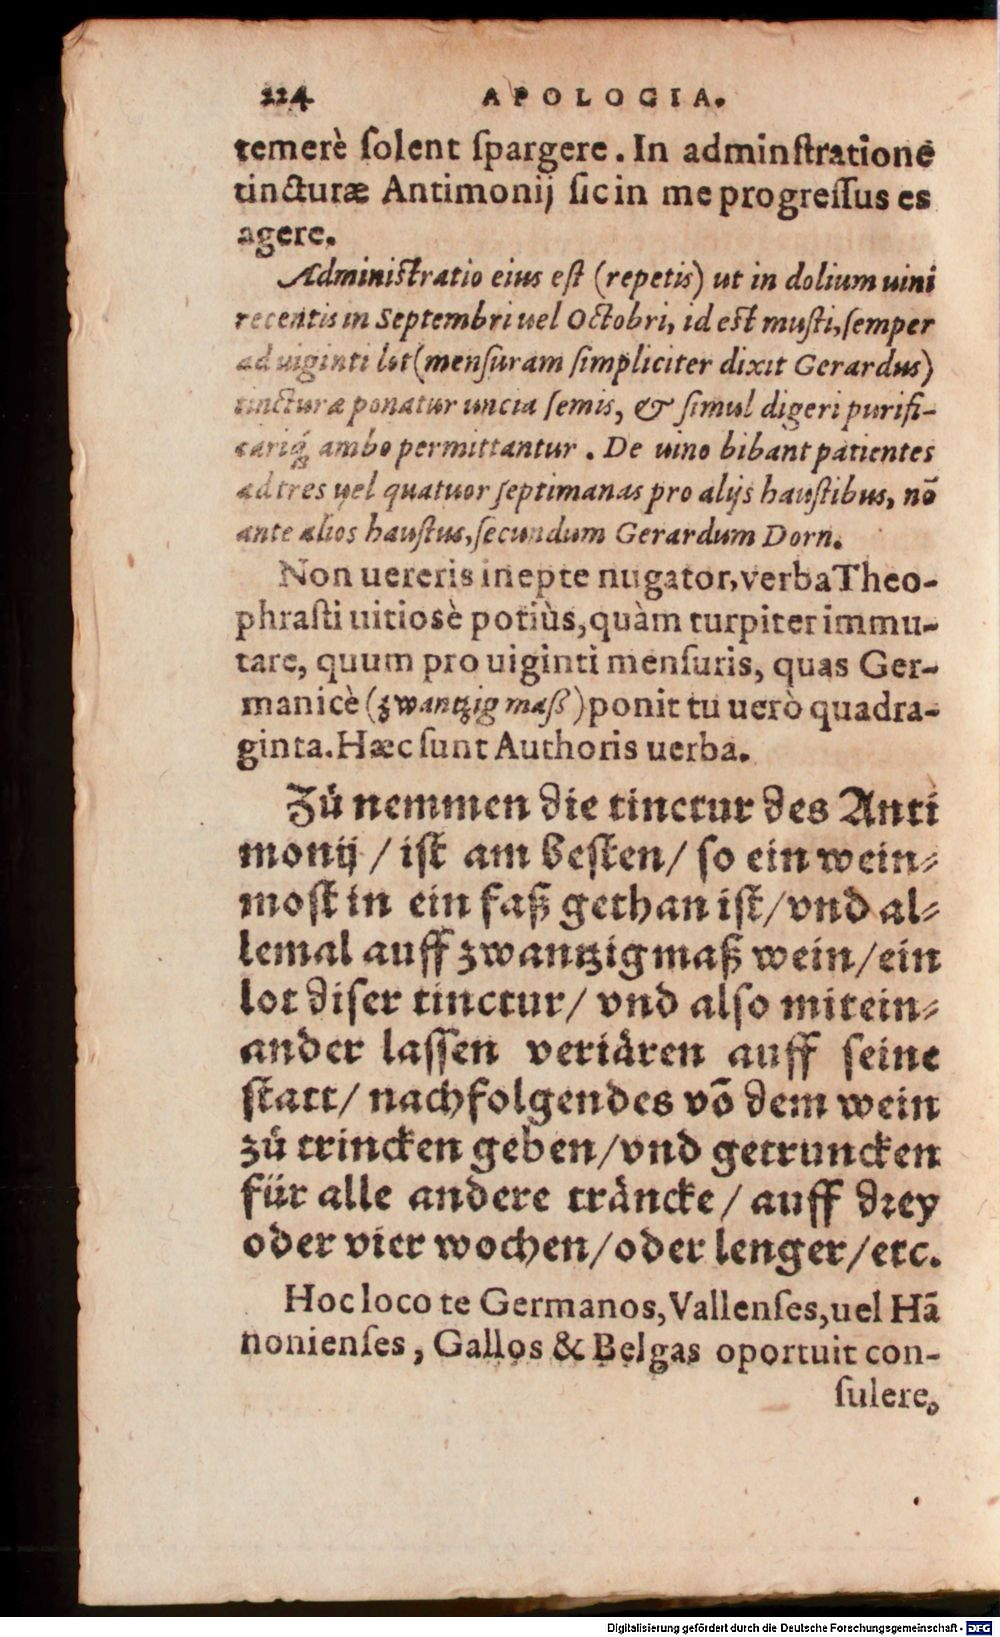 224 APOLOGIA.
temerè ſolent ſpargere. In adminſtratione
tincturæ Antimonij ſic in me progreſſus es
agere.
Adminiſtratio eius eſt (repetis) ut in dolium uini
recentis in Septembri uel Octobri, id eſt muſti, ſemper
ad uiginti lot (menſuram ſimpliciter dixit Gerardus)
tincturæ ponatur uncia ſemis, & ſimul digeri purifi-
cariq́; ambo permittantur. De uino bibant patientes
ad tres uel quatuor ſeptimanas pro alijs hauſtibus, nō
ante alios hauſtus, ſecundum Gerardum Dorn.
Non uereris inepte nugator, verba Theo-
phraſti uitiosè potiùs, quàm turpiter immu-
tare, quum pro uiginti menſuris, quas Ger-
manicè (zwantzig maß) ponit tu uerò quadra-
ginta. Hæc ſunt Authoris uerba.
Zů nemmen die tinctur des Anti
monij / iſt am beſten / ſo ein wein⸗
moſt in ein faß gethan iſt / vnd al⸗
lemal auff zwantzig maß wein / ein
lot diſer tinctur / vnd alſo mitein⸗
ander laſſen veriären auff ſeine
ſtatt / nachfolgendes võ dem wein
zů trincken geben / vnd getruncken
für alle andere träncke / auff drey
oder vier wochen / oder lenger / etc.
Hoc loco te Germanos, Vallenſes, uel Hã
nonienſes, Gallos & Belgas oportuit con-
ſulere,
Digitalisierung gefördert durch die Deutsche Forschungsgemeinschaft - DFG